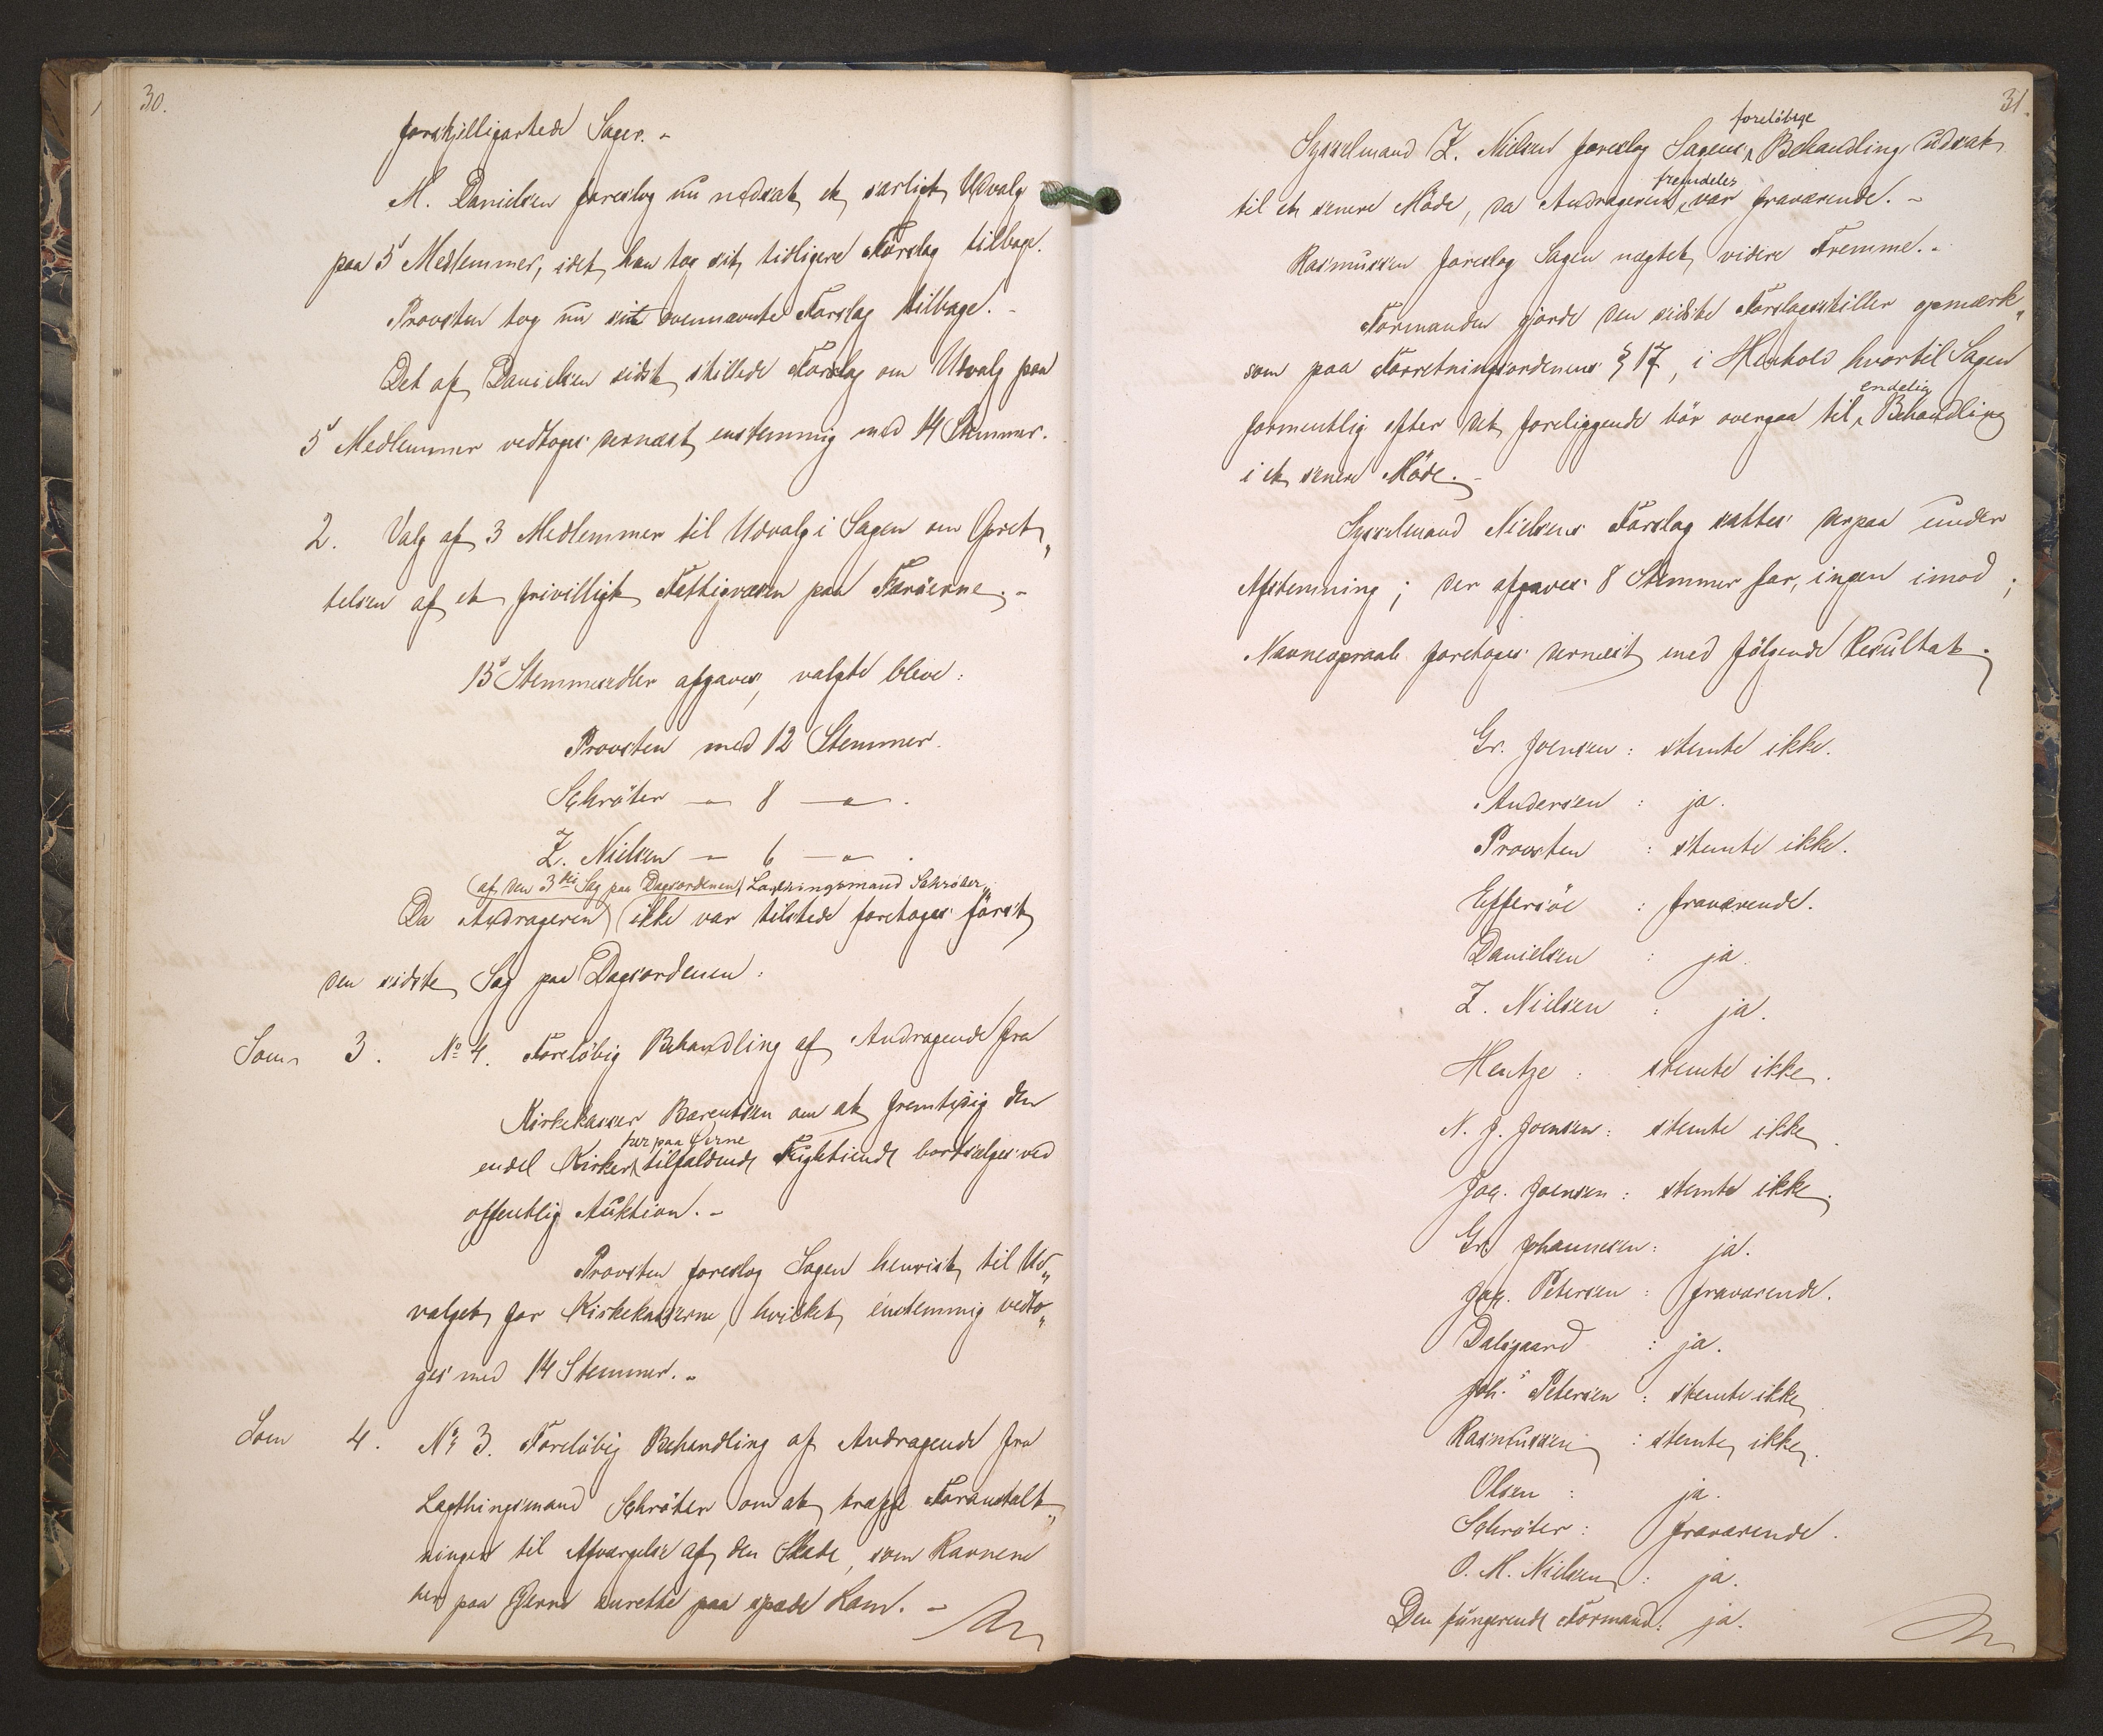 30.
forskjelligartede Sager. -
M. Danielsen foreslog nu nedsat et særligt Udvalg
paa 5 Medlemmer, idet han tog sit tidligere Forslag tilbage.
Provsten tog nu sit ovennævnte Forslag tilbage. -
Det af Danielsen sidst stillede Forslag om Udvalg paa
5 Medlemmer vedtoges dernæst enstemmig med 14 Stemmer.
2. Valg af 3 Medlemmer til Udvalg i Sagen om Opret„
telsen af et frivilligt Fattigvæsen paa Færöerne. -
15 Stemmesedler afgaves, valgte bleve:
Provsten med 12 Stemmer.
Schröter — " — 8 — " — .
Z. Nielsen — " — 6 — " — .
(af den 3die Sag paa Dagsordenen, Lagthingsmand Schröter,
Da Andrageren ikke var tilstede foretoges först
den sidste Sag paa Dagsordenen:
Som 3. No 4. Foreløbig Behandling af Andragende fra
Kirkekasser Barentsen om at fremtidig den
her paa Øerne
endel Kirker tilfaldende Fugletiende bortsælges ved
offentlig Auktion. -
Provsten foreslog Sagen henvist til Ud„
valget for Kirkekasserne, hvilket enstemmig vedto„
ges med 14 Stemmer. -
Som 4. No 3. Foreløbig Behandling af Andragende fra
Lagthingsmand Schröter om at træffe Foranstalt„
ninger til Afværgelse af den Skade, som Ravnene
her paa Øerne anrette paa spæde Lam. -
31.
foreløbige
Sysselmand Z. Nielsen foreslog Sagens Behandling udsat
fremdeles
til et senere Möde, da Andrageren var fraværende. -
Rasmussen foreslog Sagen nægtet videre Fremme. -
Formanden gjorde den sidste Forslagsstiller opmærk„
som paa Forretningsordenens § 17, i Henhold hvortil Sagen
endelig
formentlig efter det foreliggende bör overgaa til Behandling
i et senere Möde. -
Sysselmand Nielsens Forslag sattes derpaa under
Afstemning; der afgaves 8 Stemmer for, ingen imod;
Navneopraab foretoges dernæst med fölgende Resultat.
Gr. Joensen: stemte ikke.
Andersen: ja.
Provsten: stemte ikke.
Effersöe: fraværende.
Danielsen: ja.
Z. Nielsen: ja.
Hentze: stemte ikke.
N. J. Joensen: stemte ikke.
Joa. Joensen: stemte ikke.
Gr. Johannesen: ja.
Jac. Petersen: fraværende.
Dalsgaard: ja.
Joh. Petersen: stemte ikke.
Rasmussen: stemte ikke.
Olsen: ja.
Schröter: fraværende.
O. M. Nielsen: ja.
Den fungerende Formand: ja.